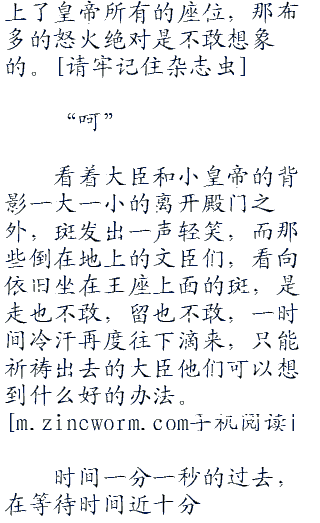 上了皇帝所有的座位，那布
多的怒火绝对是不敢想象
的。[请牢记住杂志虫]
“呵”
看着大臣和小皇帝的背
影一大一小的离开殿门之
外，斑发出一声轻笑，而那
些倒在地上的文臣们，看向
依旧坐在王座上面的斑，是
走也不敢，留也不敢，一时
间冷汗再度往下滴来，只能
祈祷出去的大臣他们可以想
到什么好的办法。
[m.zincworm.com手机阅读i
时间一分一秒的过去，
在等待时间近十分